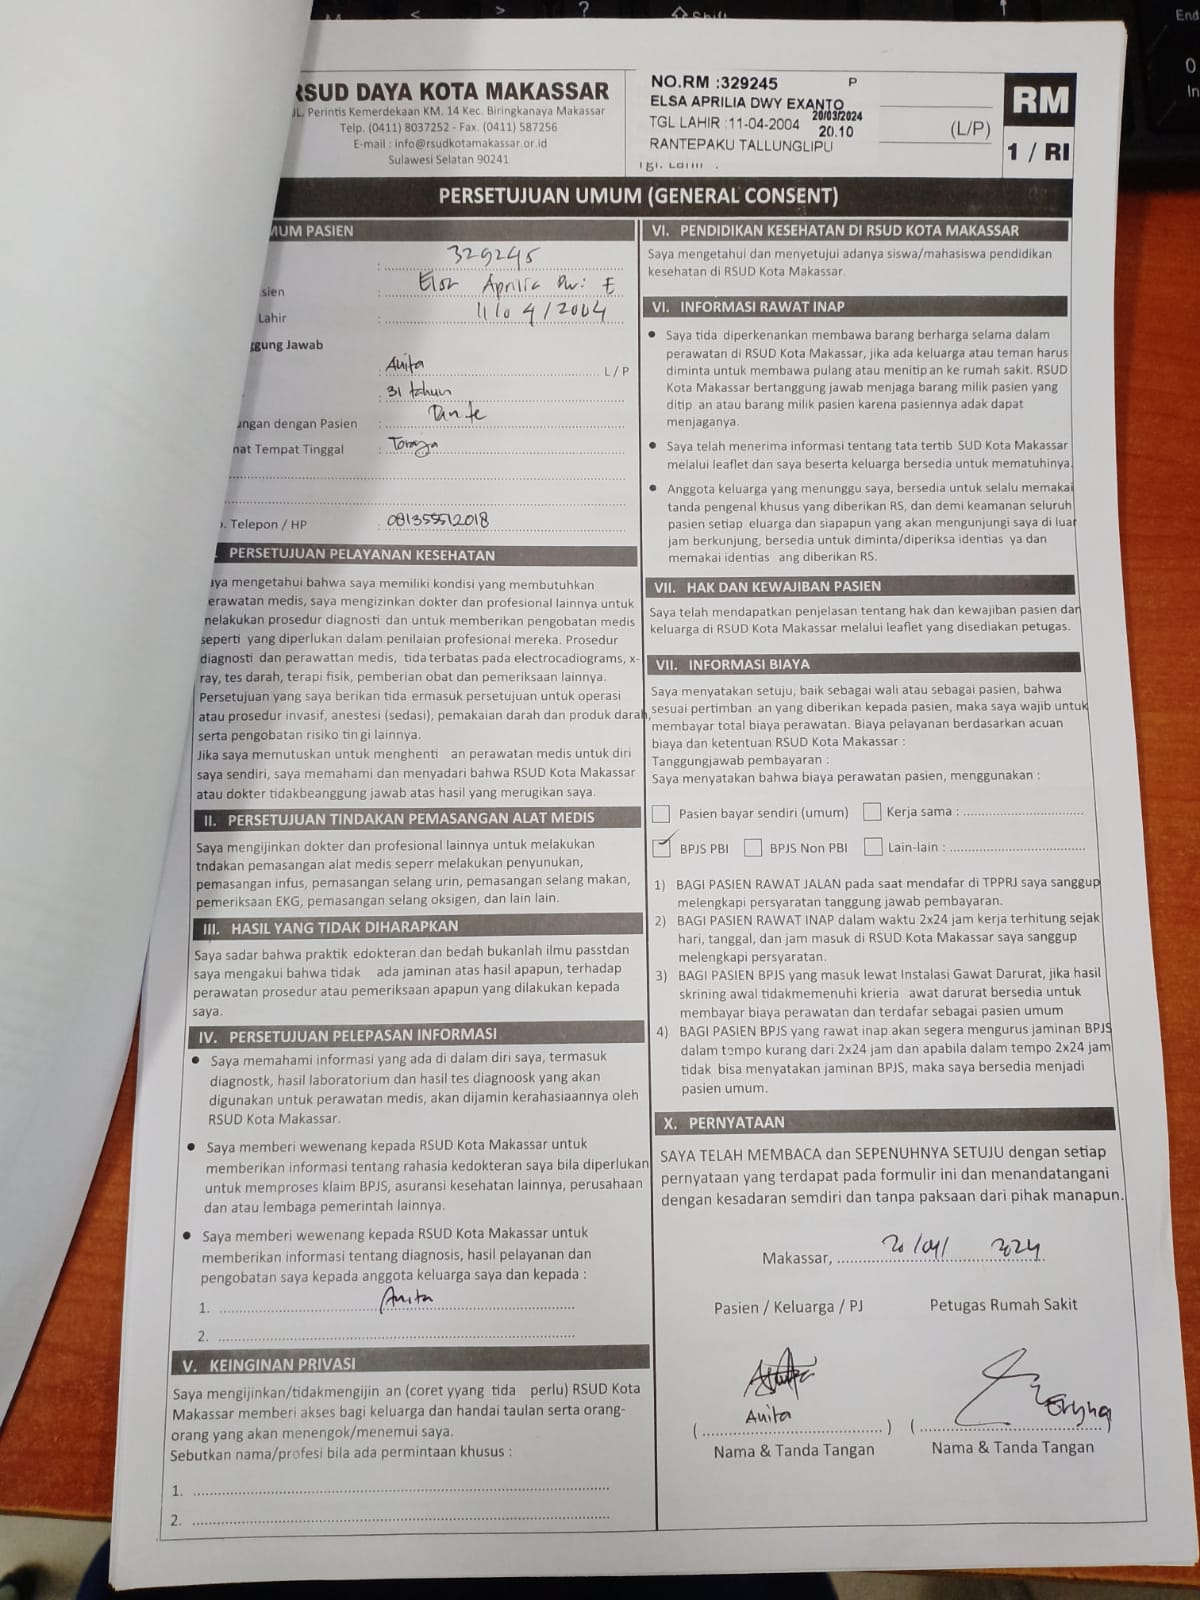 Shift
End
0
In
RSUD DAYA KOTA MAKASSAR
JL. Perintis Kemerdekaan KM. 14 Kec. Biringkanaya Makassar
Telp. (0411) 8037252 - Fax. (0411) 587256
E-mail : info@rsudkotamakassar.or.id
Sulawesi Selatan 90241
NO.RM :329245 P
ELSA APRILIA DWY EXANTO
TGL LAHIR :11-04-2004 20/03/2024
20.10
RANTEPAKU TALLUNGLIPU
Tgl. Lahir :
(L/P)
RM
1 / RI
PERSETUJUAN UMUM (GENERAL CONSENT)
MUM PASIEN
: 329245
sien : Elsa Aprilia Dwi E
Lahir : 11/04/2004
ggung Jawab
: Anita L / P
: 31 tahun
ungan dengan Pasien : Tante
nat Tempat Tinggal : Toraja
. Telepon / HP : 081355512018
. PERSETUJUAN PELAYANAN KESEHATAN
aya mengetahui bahwa saya memiliki kondisi yang membutuhkan
erawatan medis, saya mengizinkan dokter dan profesional lainnya untuk
melakukan prosedur diagnosti dan untuk memberikan pengobatan medis
seperti yang diperlukan dalam penilaian profesional mereka. Prosedur
diagnosti dan perawattan medis, tida terbatas pada electrocadiograms, x-
ray, tes darah, terapi fisik, pemberian obat dan pemeriksaan lainnya.
Persetujuan yang saya berikan tida ermasuk persetujuan untuk operasi
atau prosedur invasif, anestesi (sedasi), pemakaian darah dan produk darah,
serta pengobatan risiko tin gi lainnya.
Jika saya memutuskan untuk menghenti an perawatan medis untuk diri
saya sendiri, saya memahami dan menyadari bahwa RSUD Kota Makassar
atau dokter tidakbeanggung jawab atas hasil yang merugikan saya.
II. PERSETUJUAN TINDAKAN PEMASANGAN ALAT MEDIS
Saya mengijinkan dokter dan profesional lainnya untuk melakukan
tndakan pemasangan alat medis seperr melakukan penyunukan,
pemasangan infus, pemasangan selang urin, pemasangan selang makan,
pemeriksaan EKG, pemasangan selang oksigen, dan lain lain.
III. HASIL YANG TIDAK DIHARAPKAN
Saya sadar bahwa praktik edokteran dan bedah bukanlah ilmu passtdan
saya mengakui bahwa tidak ada jaminan atas hasil apapun, terhadap
perawatan prosedur atau pemeriksaan apapun yang dilakukan kepada
saya.
IV. PERSETUJUAN PELEPASAN INFORMASI
• Saya memahami informasi yang ada di dalam diri saya, termasuk
diagnostk, hasil laboratorium dan hasil tes diagnoosk yang akan
digunakan untuk perawatan medis, akan dijamin kerahasiaannya oleh
RSUD Kota Makassar.
• Saya memberi wewenang kepada RSUD Kota Makassar untuk
memberikan informasi tentang rahasia kedokteran saya bila diperlukan
untuk memproses klaim BPJS, asuransi kesehatan lainnya, perusahaan
dan atau lembaga pemerintah lainnya.
• Saya memberi wewenang kepada RSUD Kota Makassar untuk
memberikan informasi tentang diagnosis, hasil pelayanan dan
pengobatan saya kepada anggota keluarga saya dan kepada :
1. Anita
2.
V. KEINGINAN PRIVASI
Saya mengijinkan/tidakmengijin an (coret yyang tida perlu) RSUD Kota
Makassar memberi akses bagi keluarga dan handai taulan serta orang-
orang yang akan menengok/menemui saya.
Sebutkan nama/profesi bila ada permintaan khusus :
1.
2.
VI. PENDIDIKAN KESEHATAN DI RSUD KOTA MAKASSAR
Saya mengetahui dan menyetujui adanya siswa/mahasiswa pendidikan
kesehatan di RSUD Kota Makassar.
VI. INFORMASI RAWAT INAP
• Saya tida diperkenankan membawa barang berharga selama dalam
perawatan di RSUD Kota Makassar, jika ada keluarga atau teman harus
diminta untuk membawa pulang atau menitip an ke rumah sakit. RSUD
Kota Makassar bertanggung jawab menjaga barang milik pasien yang
ditip an atau barang milik pasien karena pasiennya adak dapat
menjaganya.
• Saya telah menerima informasi tentang tata tertib SUD Kota Makassar
melalui leaflet dan saya beserta keluarga bersedia untuk mematuhinya.
• Anggota keluarga yang menunggu saya, bersedia untuk selalu memakai
tanda pengenal khusus yang diberikan RS, dan demi keamanan seluruh
pasien setiap eluarga dan siapapun yang akan mengunjungi saya di luar
jam berkunjung, bersedia untuk diminta/diperiksa identias ya dan
memakai identias ang diberikan RS.
VII. HAK DAN KEWAJIBAN PASIEN
Saya telah mendapatkan penjelasan tentang hak dan kewajiban pasien dan
keluarga di RSUD Kota Makassar melalui leaflet yang disediakan petugas.
VII. INFORMASI BIAYA
Saya menyatakan setuju, baik sebagai wali atau sebagai pasien, bahwa
sesuai pertimban an yang diberikan kepada pasien, maka saya wajib untuk
membayar total biaya perawatan. Biaya pelayanan berdasarkan acuan
biaya dan ketentuan RSUD Kota Makassar :
Tanggungjawab pembayaran :
Saya menyatakan bahwa biaya perawatan pasien, menggunakan :
Pasien bayar sendiri (umum) Kerja sama :
BPJS PBI BPJS Non PBI Lain-lain :
1) BAGI PASIEN RAWAT JALAN pada saat mendafar di TPPRJ saya sanggup
melengkapi persyaratan tanggung jawab pembayaran.
2) BAGI PASIEN RAWAT INAP dalam waktu 2x24 jam kerja terhitung sejak
hari, tanggal, dan jam masuk di RSUD Kota Makassar saya sanggup
melengkapi persyaratan.
3) BAGI PASIEN BPJS yang masuk lewat Instalasi Gawat Darurat, jika hasil
skrining awal tidakmemenuhi krieria awat darurat bersedia untuk
membayar biaya perawatan dan terdafar sebagai pasien umum
4) BAGI PASIEN BPJS yang rawat inap akan segera mengurus jaminan BPJS
dalam tempo kurang dari 2x24 jam dan apabila dalam tempo 2x24 jam
tidak bisa menyatakan jaminan BPJS, maka saya bersedia menjadi
pasien umum.
X. PERNYATAAN
SAYA TELAH MEMBACA dan SEPENUHNYA SETUJU dengan setiap
pernyataan yang terdapat pada formulir ini dan menandatangani
dengan kesadaran semdiri dan tanpa paksaan dari pihak manapun.
Makassar, 20/04/ 2024
Pasien / Keluarga / PJ Petugas Rumah Sakit
( Anita ) ( )
Nama & Tanda Tangan Nama & Tanda Tangan